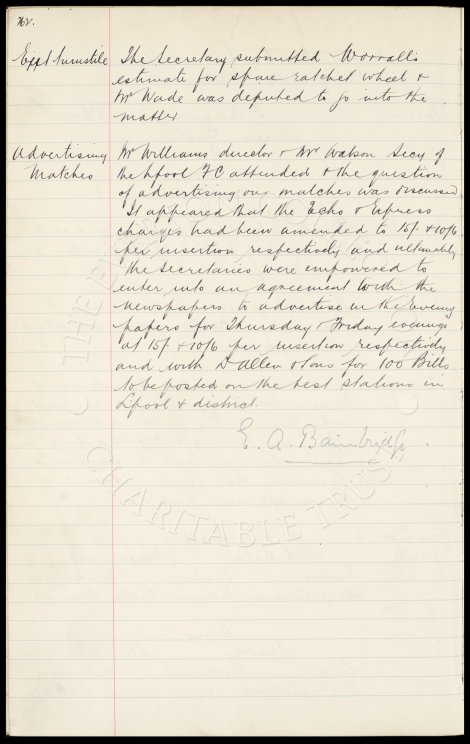 Expl turnstile The Secretary submitted Worralls
estimate for spare ratchet wheel &
Mr Wade was deputed to go into the
matter
Advertising Mr Williams director & Mr Watson Secy of
Matches the Lpool FC attended & the question
of advertising our matches was discussed
It appeared that the Echo & Express
charges had been amended to 15/- & 10/6
per insertion respectively and ultimately
the Secretaries were empowered to
enter into an agreement with the
newspapers to advertise in the Evening
papers for Thursday & Friday evenings
at 15/- & 10/6 per insertion respectively
and with D Allen & Sons for 100 Bills
to be posted on the best stations in
Lpool & district.
E. A. Bainbridge
THE
CHARITABLE TRUST